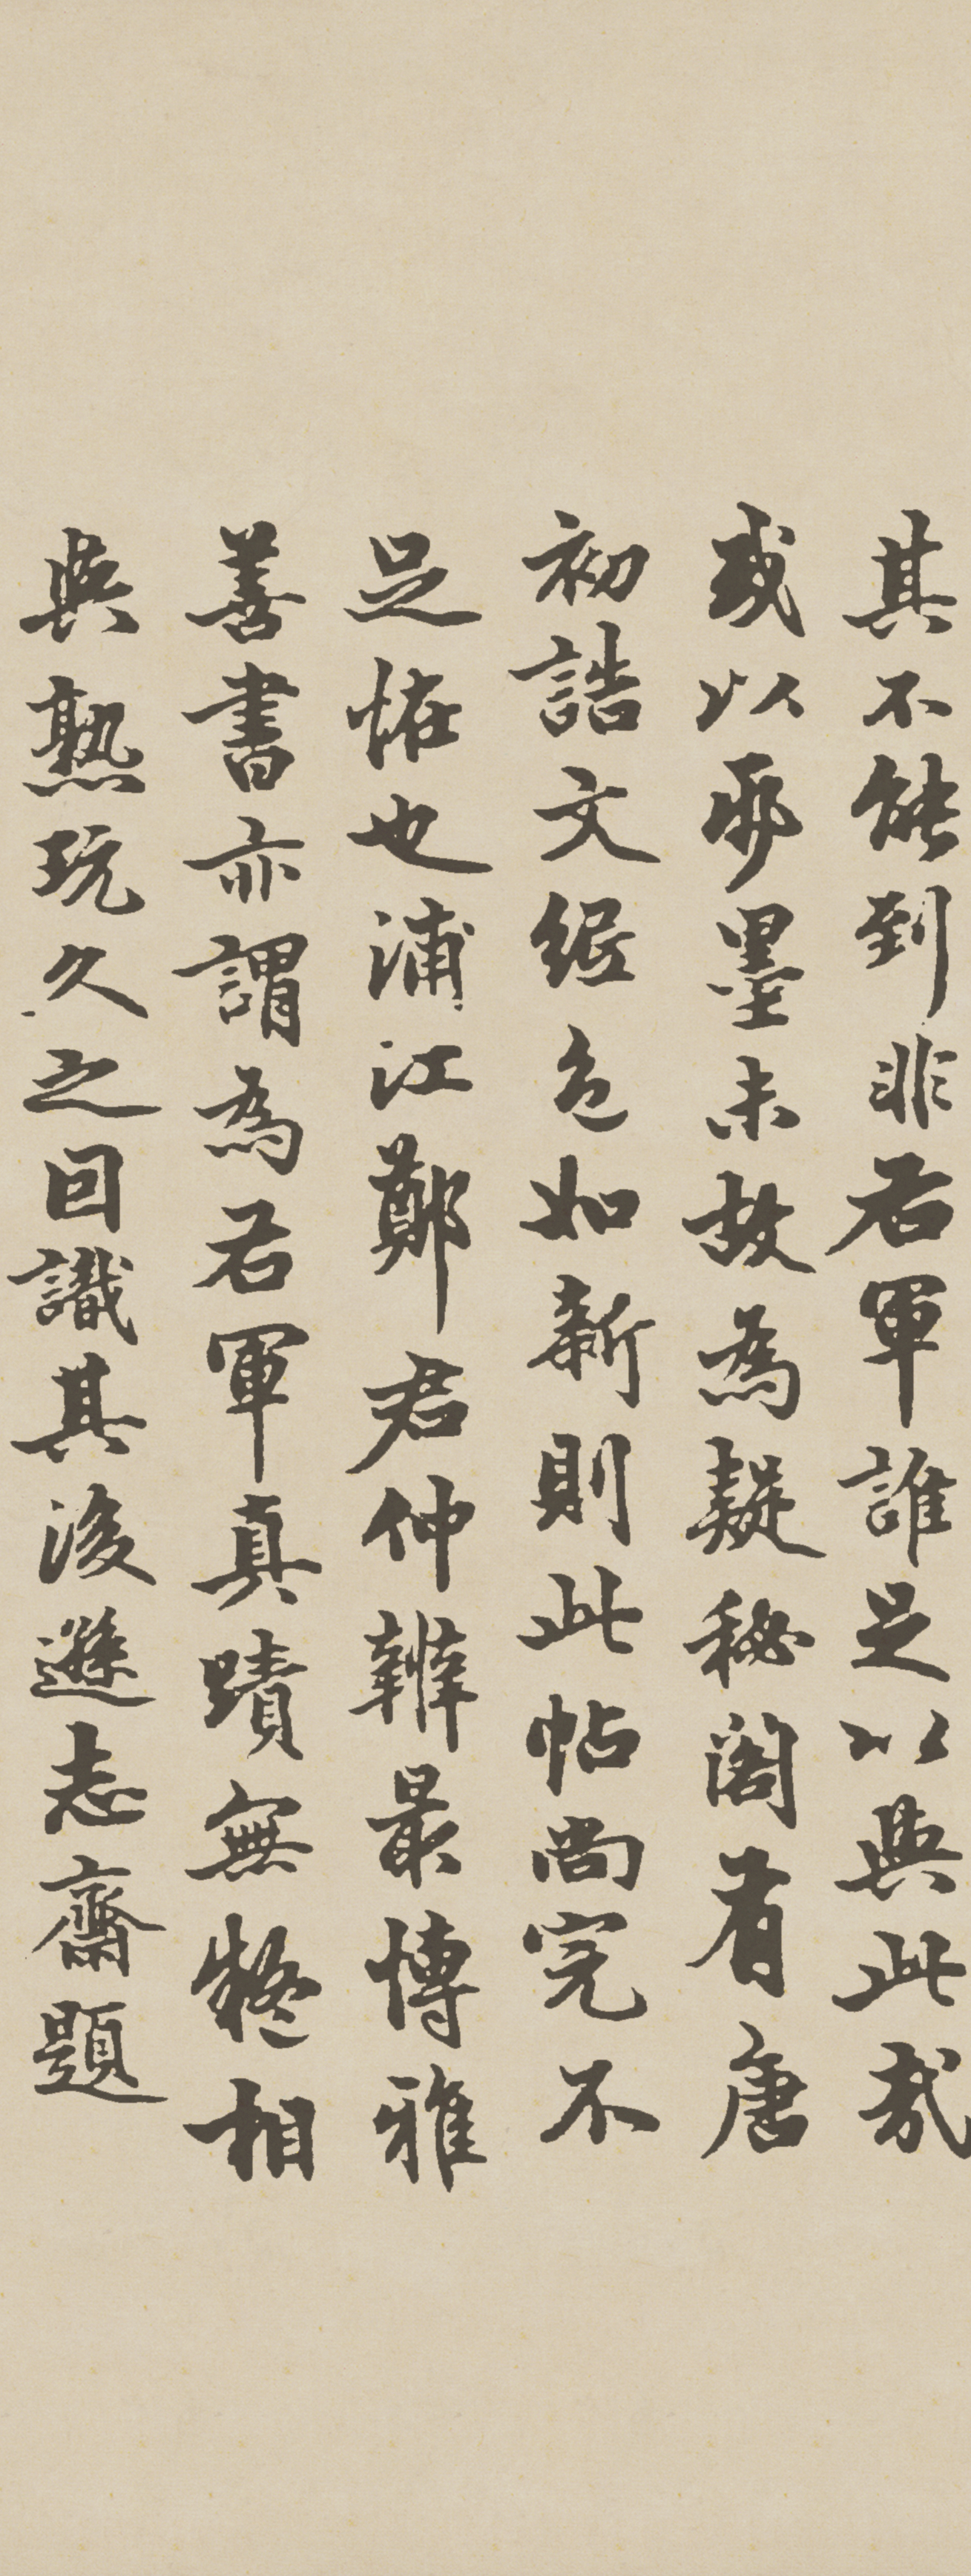 其不能到非右軍誰足以與此哉
或以帋墨未故為疑秘閣有唐
初誥文色如新則此帖尚完不
足恠也浦江鄭君仲辨最博雅
善書亦謂為右軍真蹟無疑相
與熟玩久之因識其後遜志齋題